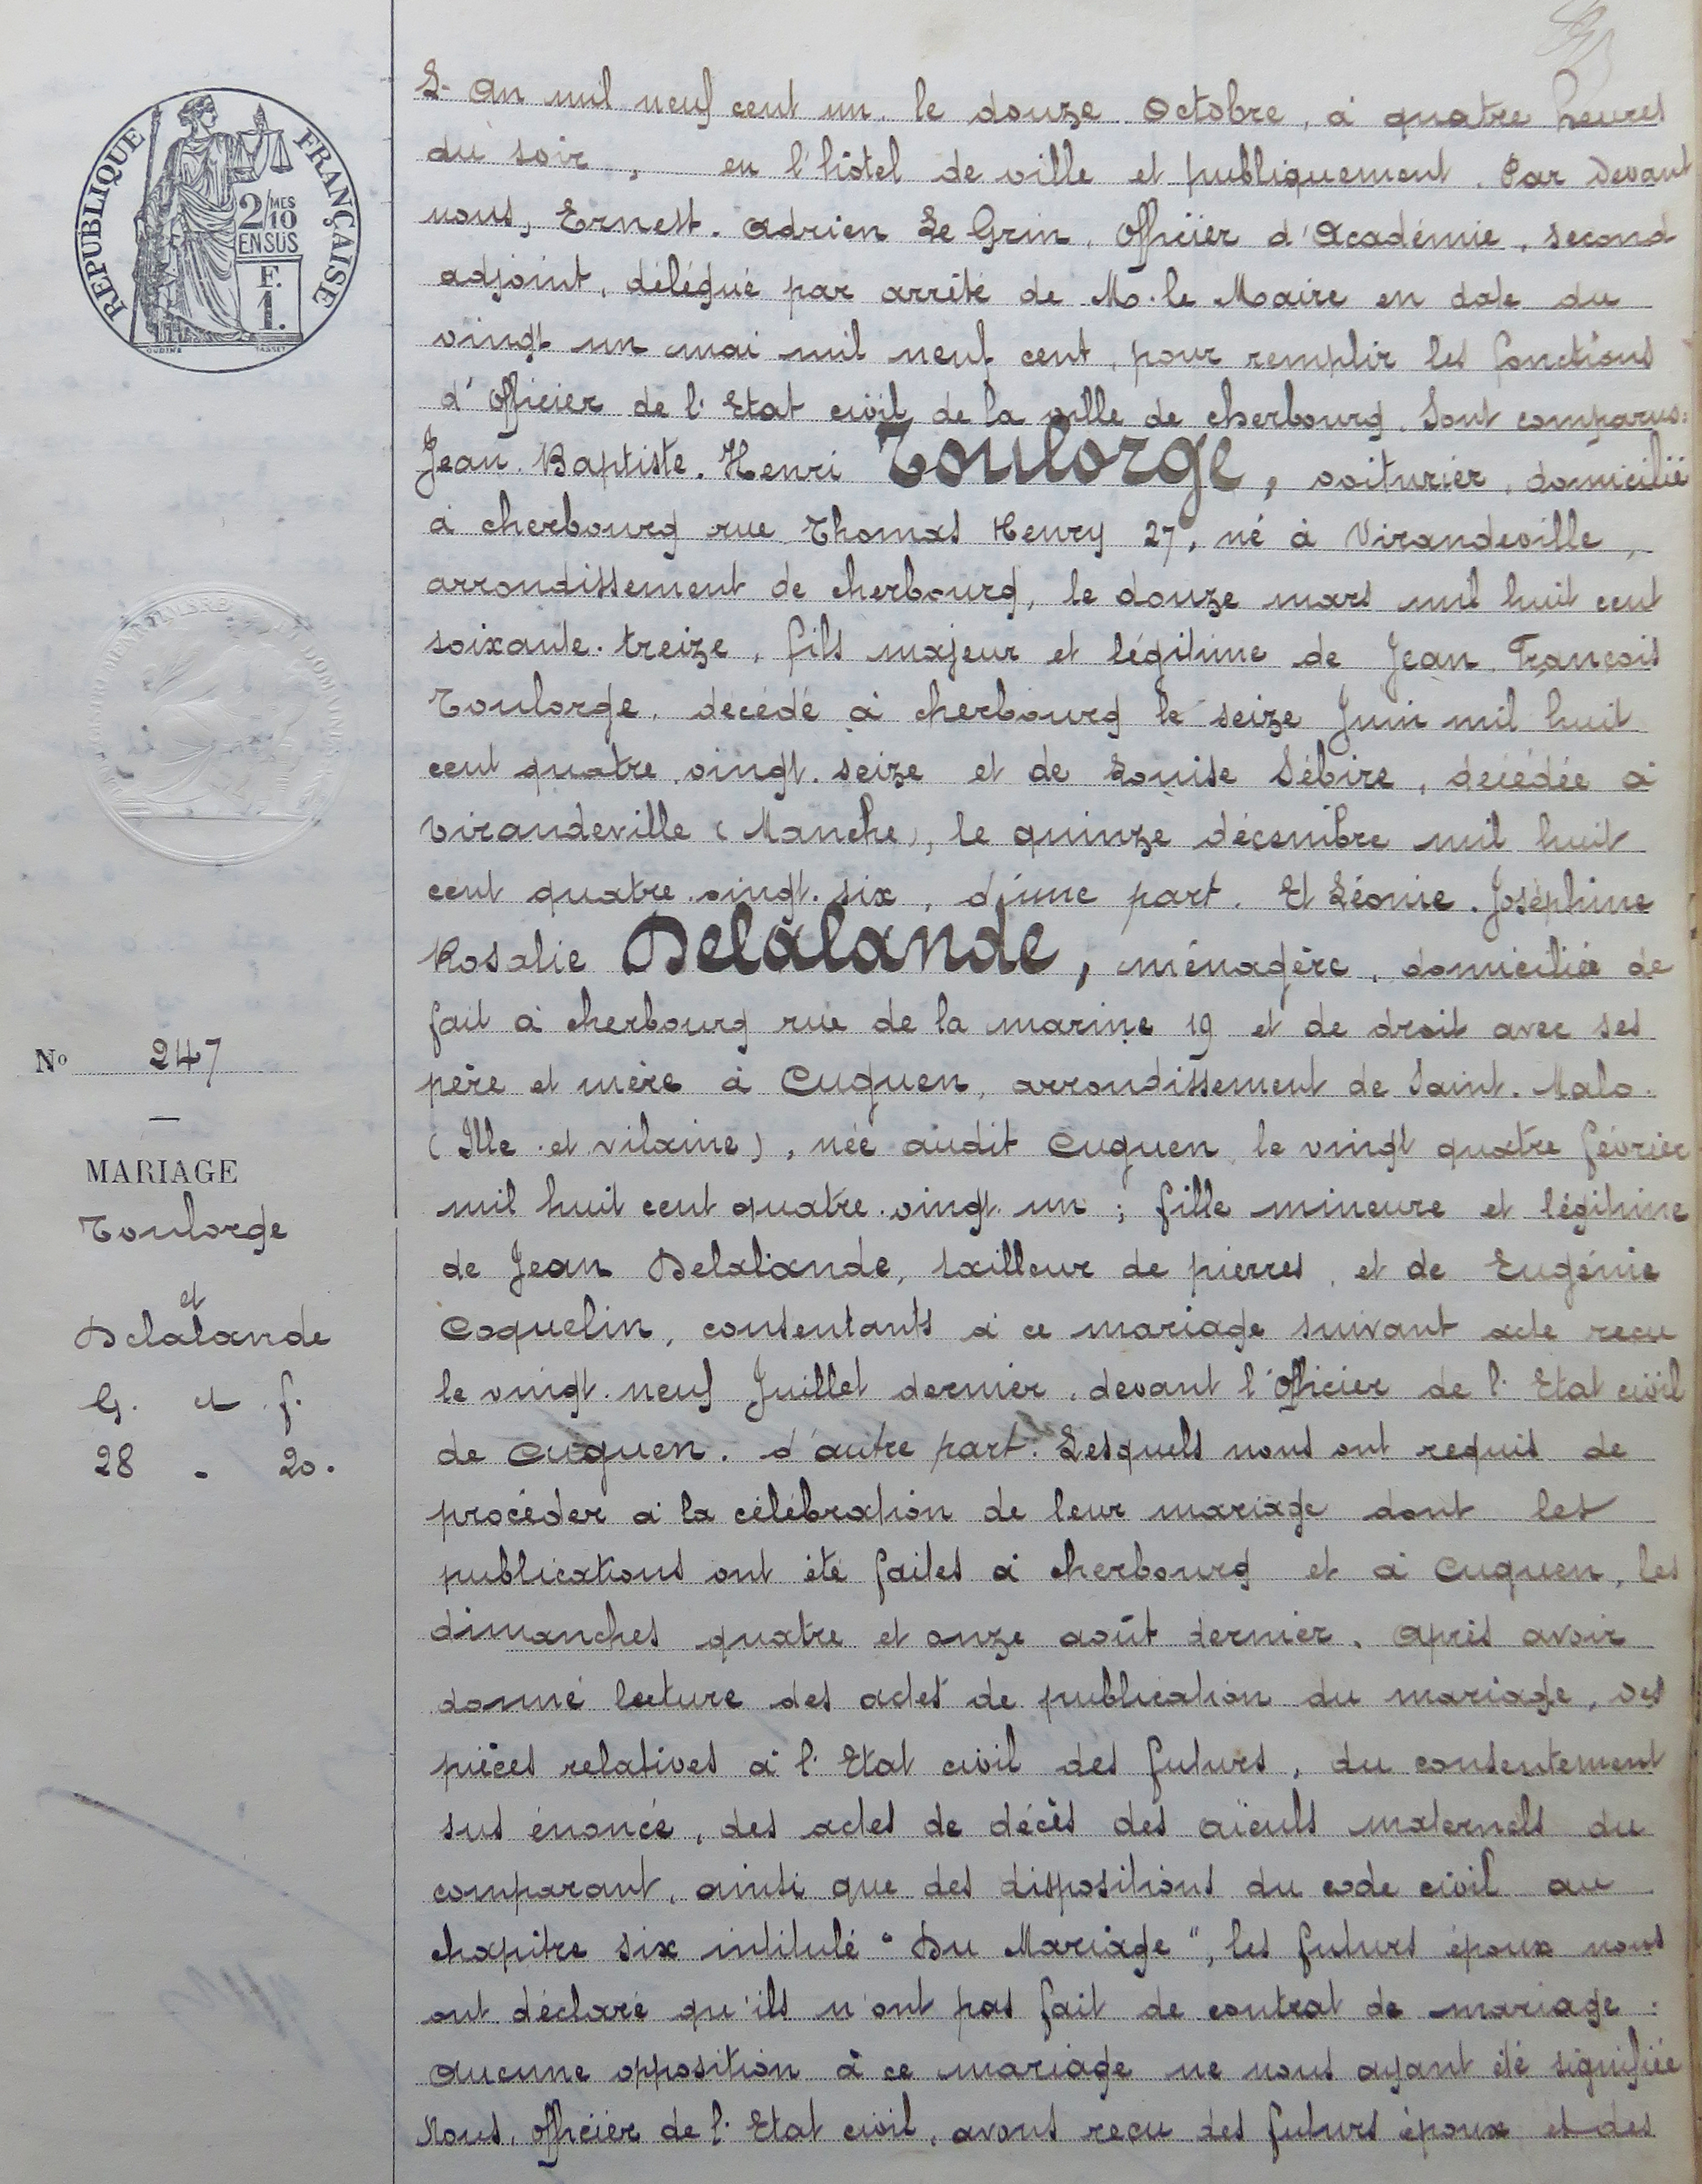 RÉPUBLIQUE FRANÇAISE
2/MES
10
EN SUS
F.
1.
OUDINÉ TASSET
TIMBRE
N° 247
—
MARIAGE
Toulorge
et
Delalande
G. et f.
28 - 20.
L'An mil neuf cent un, le douze Octobre, à quatre heures
du soir, en l'hôtel de ville et publiquement. Par devant
nous, Ernest. Adrien Le Grin, Officier d'Académie, second
adjoint, délégué par arrêté de M. le Maire en date du
vingt un mai mil neuf cent, pour remplir les fonctions
d'Officier de l'Etat civil de la ville de cherbourg. Sont comparus:
Jean. Baptiste. Henri Toulorge, voiturier, domicilié
à cherbourg rue Thomas Henry 27, né à Virandeville,
arrondissement de cherbourg, le douze mars mil huit cent
soixante. treize, fils majeur et légitime de Jean François
Toulorge, décédé à cherbourg le seize Juin mil huit
cent quatre. vingt. seize et de Louise Sébire, décédée à
Virandeville (Manche), le quinze décembre mil huit
cent quatre. vingt. six, d'une part. Et Léonie. Joséphine
Rosalie Delalande, ménagère, domiciliée de
fait à cherbourg rue de la marine 19 et de droit avec ses
père et mère à Cuguen, arrondissement de Saint. Malo.
(Ille et vilaine), née audit Cuguen le vingt quatre février
mil huit cent quatre. vingt. un; fille mineure et légitime
de Jean Delalande, tailleur de pierres, et de Eugénie
Coquelin, consentants à ce mariage suivant acte reçu
le vingt. neuf Juillet dernier, devant l'Officier de l'Etat civil
de Cuguen. d'autre part. Lesquels nous ont requis de
procéder à la célébration de leur mariage dont les
publications ont été faites à cherbourg et à Cuguen, les
dimanches quatre et onze août dernier. Après avoir
donné lecture des actes de publication du mariage, des
pièces relatives à l'Etat civil des futurs, du consentement
sus énoncé, des actes de décès des aïeuls maternels du
comparant, ainsi que des dispositions du code civil au
chapitre six intitulé "Du Mariage", les futurs époux nous
ont déclaré qu'ils n'ont pas fait de contrat de mariage:
Aucune opposition à ce mariage ne nous ayant été signifiée
Nous, Officier de l'Etat civil, avons reçu des futurs époux et des